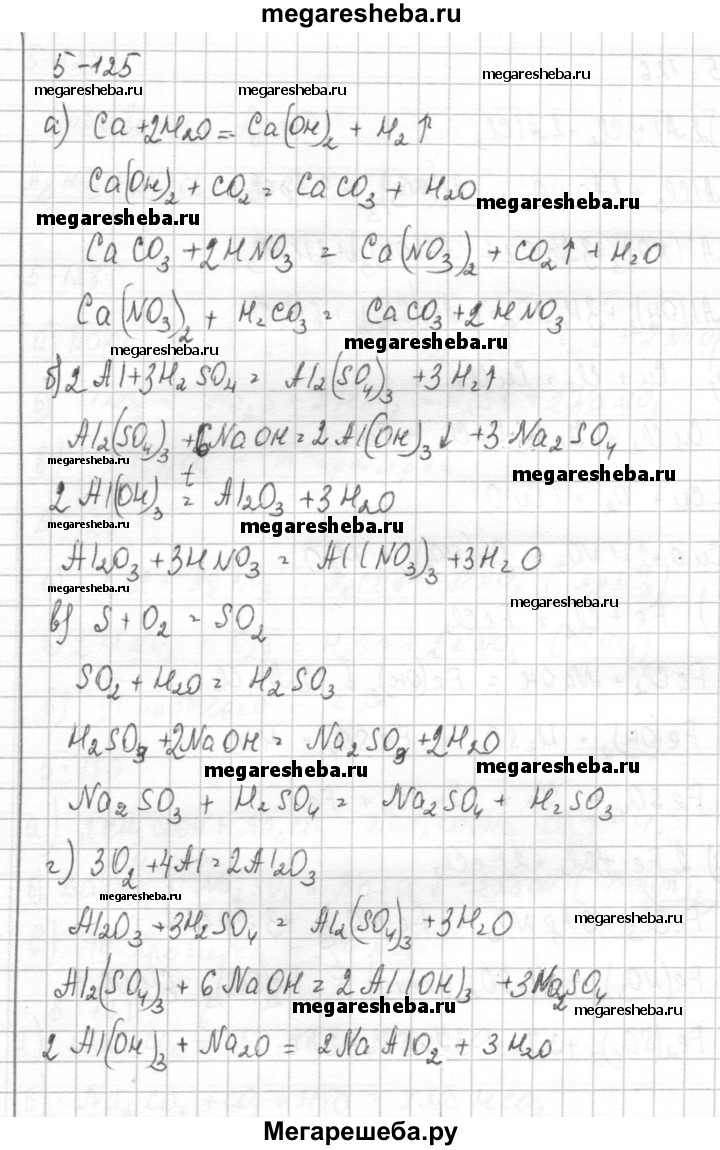 megaresheba.ru
5-125
megaresheba.ru
megaresheba.ru megaresheba.ru
а) Ca + 2H₂O = Ca(OH)₂ + H₂↑
Ca(OH)₂ + CO₂ = CaCO₃ + H₂O
megaresheba.ru
megaresheba.ru
CaCO₃ + 2HNO₃ = Ca(NO₃)₂ + CO₂↑ + H₂O
Ca(NO₃)₂ + H₂CO₃ = CaCO₃ + 2HNO₃
megaresheba.ru megaresheba.ru
б) 2Al + 3H₂SO₄ = Al₂(SO₄)₃ + 3H₂↑
Al₂(SO₄)₃ + 6NaOH = 2Al(OH)₃↓ + 3Na₂SO₄
megaresheba.ru megaresheba.ru
t
2Al(OH)₃ = Al₂O₃ + 3H₂O
megaresheba.ru megaresheba.ru
Al₂O₃ + 3HNO₃ = Al(NO₃)₃ + 3H₂O
megaresheba.ru megaresheba.ru
в) S + O₂ = SO₂
SO₂ + H₂O = H₂SO₃
H₂SO₃ + 2NaOH = Na₂SO₃ + 2H₂O
megaresheba.ru megaresheba.ru
Na₂SO₃ + H₂SO₄ = Na₂SO₄ + H₂SO₃
г) 3O₂ + 4Al = 2Al₂O₃
megaresheba.ru
Al₂O₃ + 3H₂SO₄ = Al₂(SO₄)₃ + 3H₂O
megaresheba.ru
Al₂(SO₄)₃ + 6NaOH = 2Al(OH)₃ + 3Na₂SO₄
megaresheba.ru megaresheba.ru
2Al(OH)₃ + Na₂O = 2NaAlO₂ + 3H₂O
Мегарешеба.ру